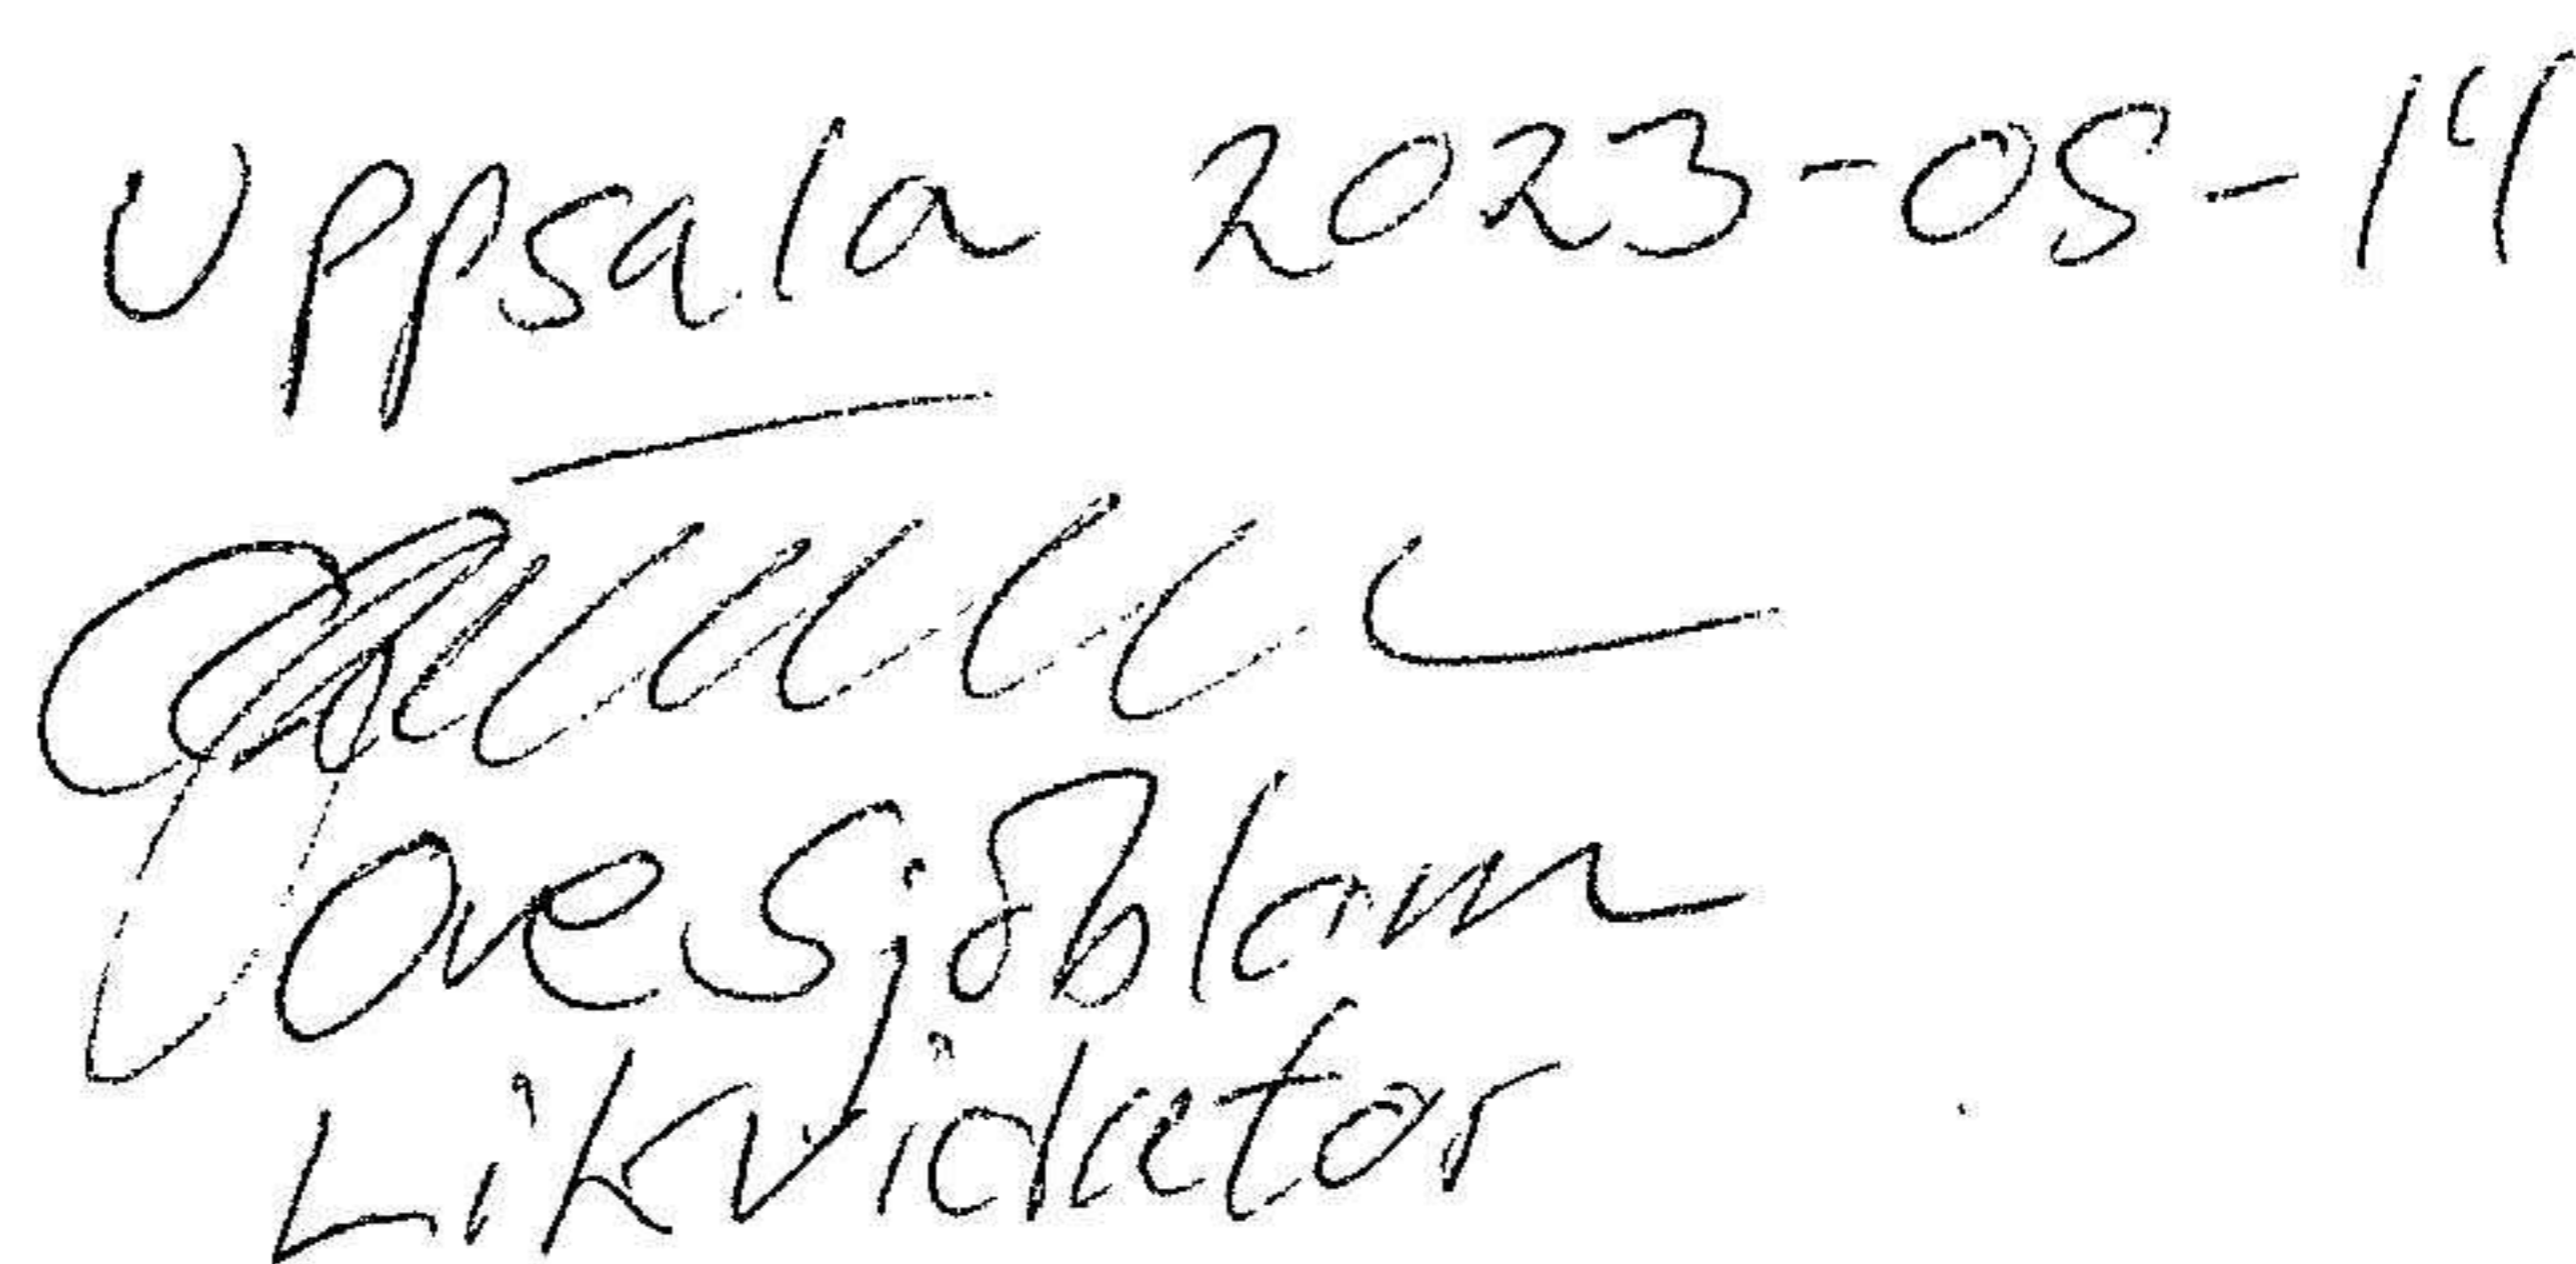 Uppsala 2023-05-14
Ove Sjöblom
Likvidator